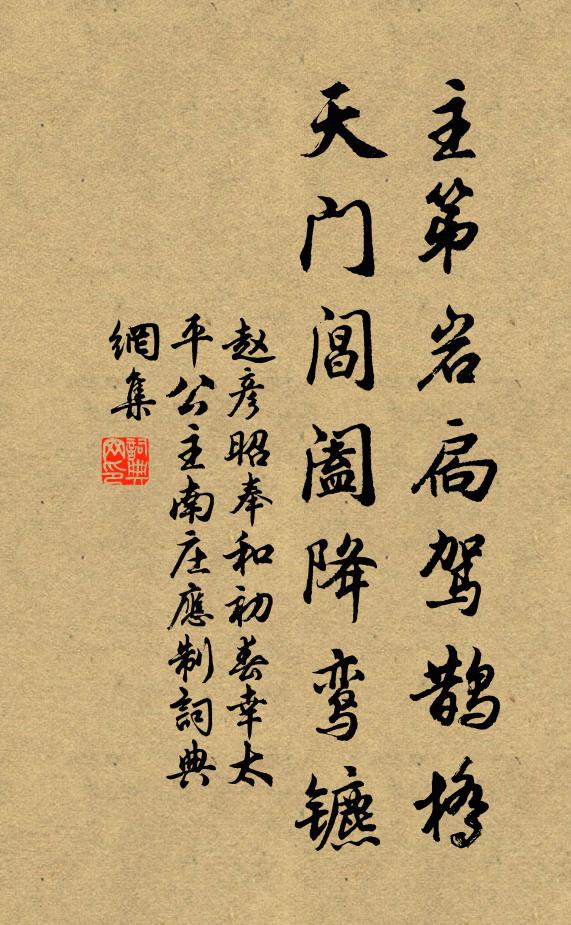 主第岩扃驾鹊桥
天门阊阖降鸾镳
赵彦昭奉和初春幸太
平公主南庄應制詞典
網集
詞典網印